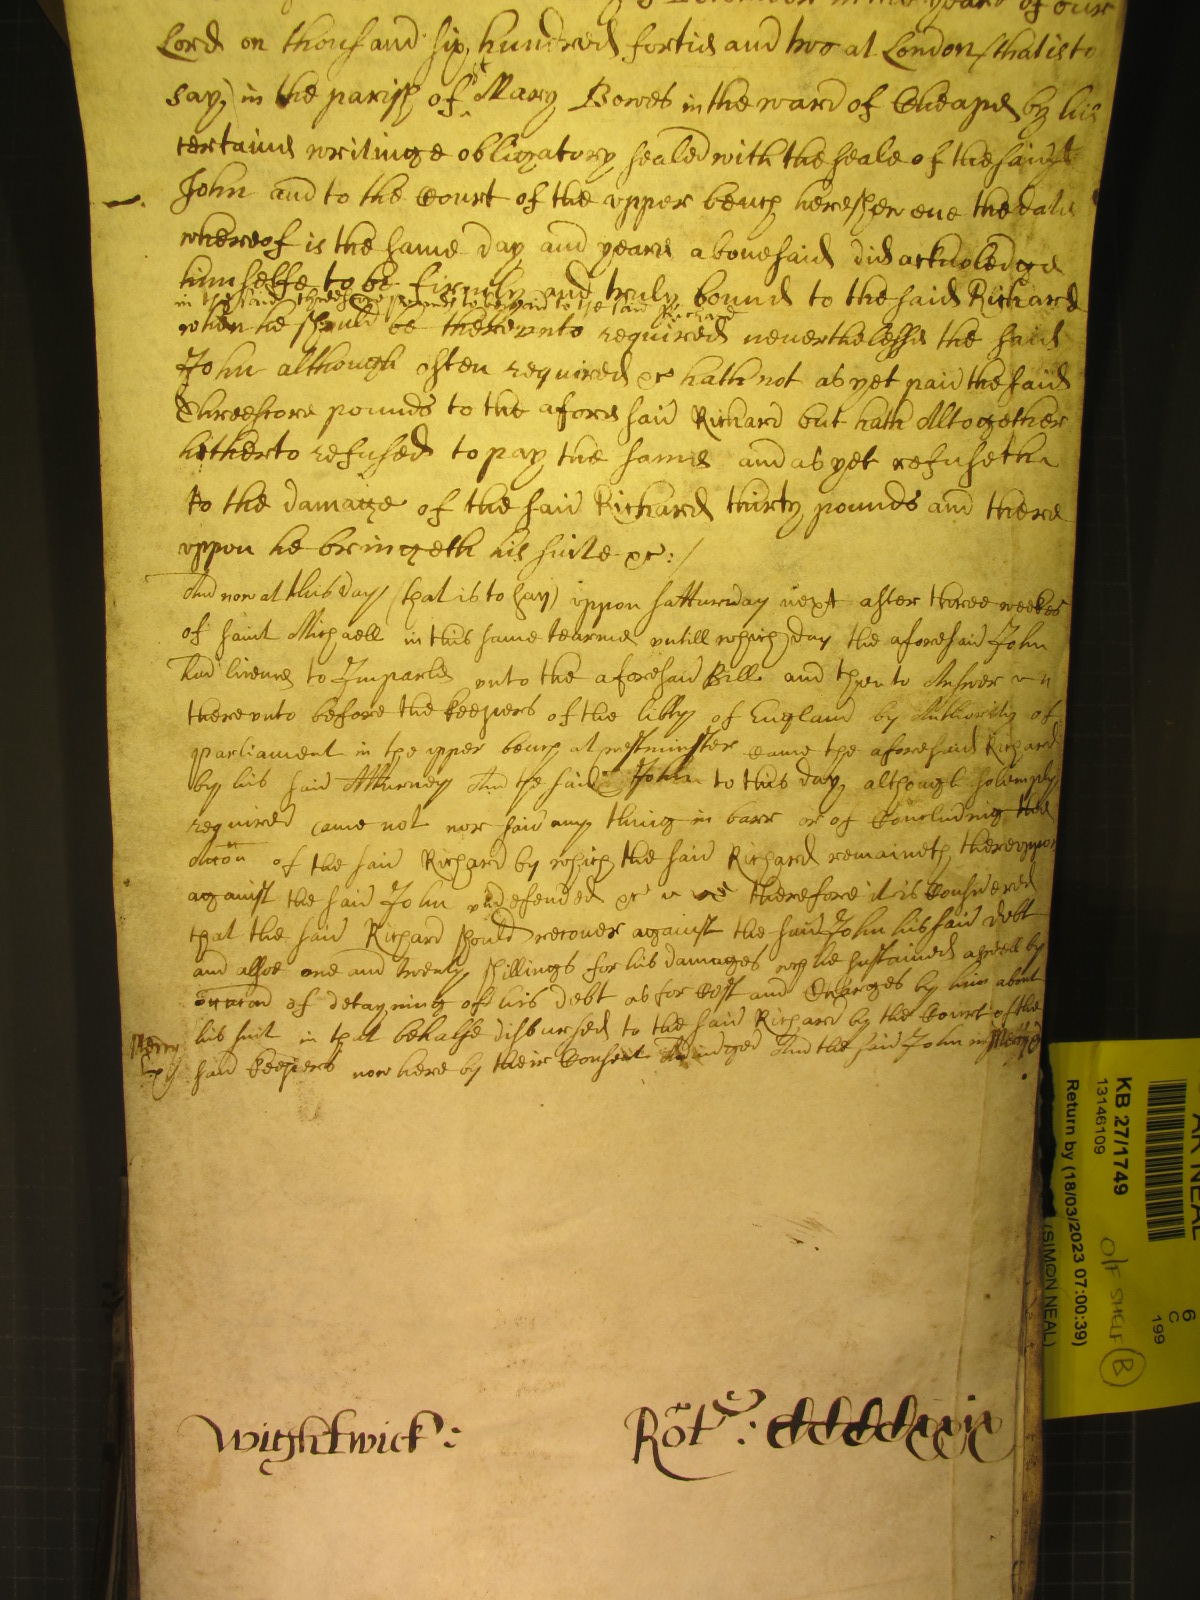 December in the yeare of our
Lord on thousand six hundred fortie and two at London (that is to
say) in the parish of St Mary Bowes in the ward of Cheape by his
certaine writinge obligatory sealed with the seale of the said
John and to the Court of the vpper bench here shewen the date
whereof is the same day and yeare abouesaid did acknoledge
himselfe to be firmly and truly bound to the said Richard
in the said threescore pounds to be paid to the said Richard
when he should be therevnto required neuerthelesse the said
John although often required &c hath not as yet paid the said
Threescore pounds to the afore said Richard but hath Altogether
hitherto refused to pay the same and as yet refuseth
to the damage of the said Richard thirty pounds and there
vppon he bringeth his suite &c: /
And now at this day (that is to say) vppon satturday next after three weekes
of saint Michaell in this same tearme vntill which day the aforesaid John
had licence to Imparle vnto the aforesaid Bill and then to Answer
therevnto before the keepers of the libty of England by Authority of
parliament in the vpper bench at westminster came the aforesaid Richard
by his said Atturney And the said John to this day although solemply
required came not nor said any thing in barr or of Concluding the
Accon of the said Richard by which the said Richard remaineth therevppon
against the said John vndefended &c therefore it is Considered
that the said Richard should recouer against the said John his said debt
and alsoe one and twenty shillings for his damages wch he sustained aswell by
occacon of detayning of his debt as for Cost and Charges by him about
his suit in that behalfe disbursed to the said Richard by the Court of the
Mercy
said keepers now here by their Consent Adiudged And the said John in Mercy &c
Wightwick:
Rot: CCCCxxix
AR NEAL
KB 27/1749
13146109
Return by (18/03/2023 07:00:39)
(SIMON NEAL)
6
C
199
O/F SHELF B